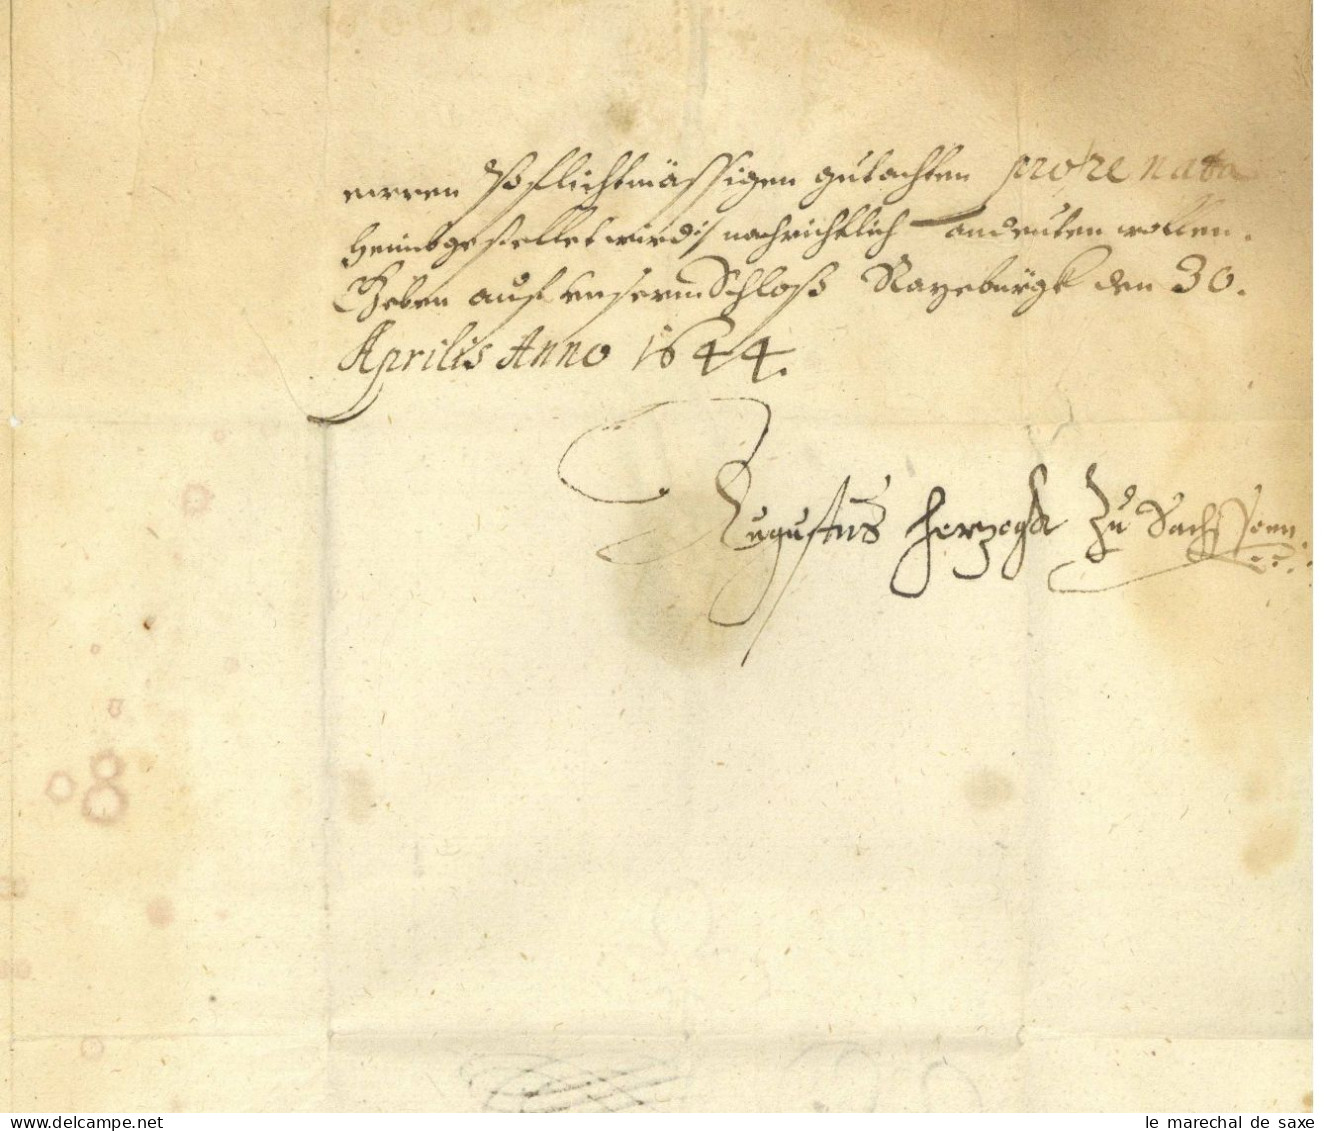 euren Pflichtmässigen gutachten pro re nata
heimbgestellet wird / nachrichtlich andeuten wollen.
Geben auf unserm Schloß Razeburgk den 30.
Aprilis Anno 1644.
Augustus Herzogk Zu Sachssenn
www.delcampe.net
le marechal de saxe